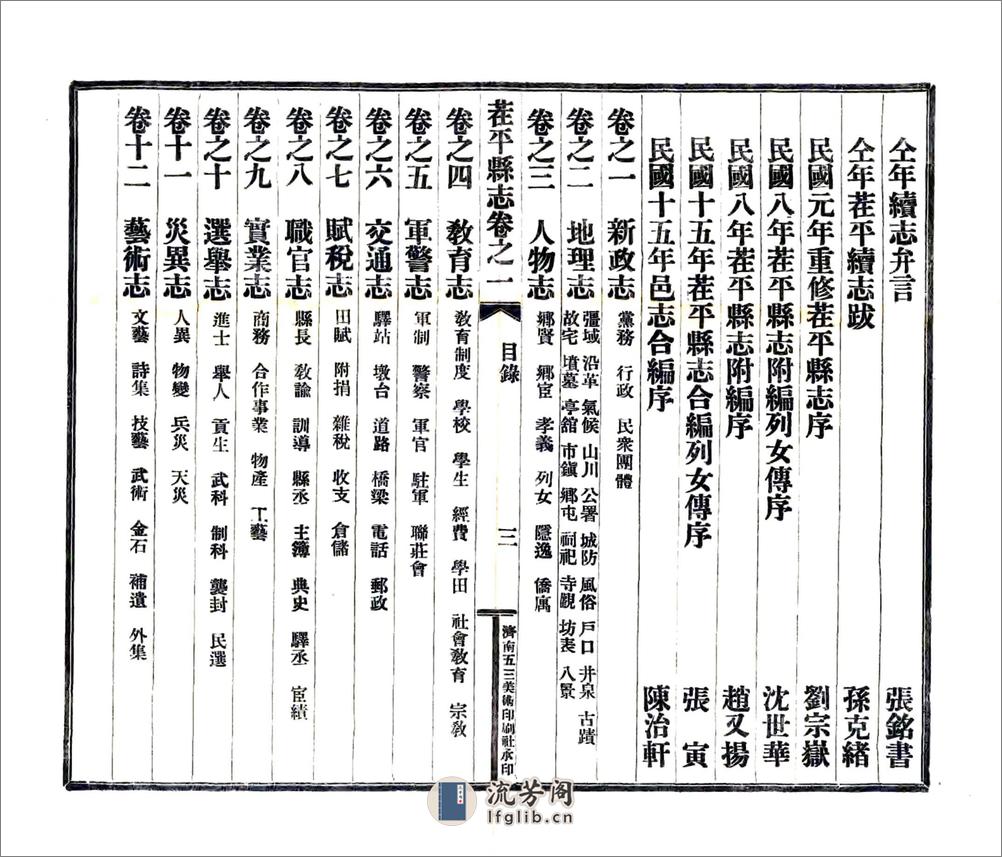 仝年續志弁言 張銘書
仝年茌平續志跋 孫克緒
民國元年重修茌平縣志序 劉宗嶽
民國八年茌平縣志附編列女傳序 沈世華
民國八年茌平縣志附編序 趙又揚
民國十五年茌平縣志合編列女傳序 張寅
民國十五年邑志合編序 陳治軒
卷之一 新政志 黨務 行政 民衆團體
卷之二 地理志 疆域 沿革 氣候 山川 公署 城防 風俗 戶口 井泉 古蹟
故宅 墳墓 亭館 市鎭 鄉屯 祠祀 寺觀 坊表 八景
卷之三 人物志 鄉賢 鄉宦 孝義 列女 隱逸 僑寓
茌平縣志卷之一 目錄 三 濟南五三美術印刷社承印
卷之四 教育志 敎育制度 學校 學生 經費 學田 社會敎育 宗敎
卷之五 軍警志 軍制 警察 軍官 駐軍 聯莊會
卷之六 交通志 驛站 墩台 道路 橋梁 電話 郵政
卷之七 賦稅志 田賦 附捐 雜稅 收支 倉儲
卷之八 職官志 縣長 敎諭 訓導 縣丞 主簿 典史 驛丞 宦績
卷之九 實業志 商務 合作事業 物產 工藝
卷之十 選舉志 進士 舉人 貢生 武科 制科 襲封 民選
卷十一 災異志 人異 物變 兵災 天災
卷十二 藝術志 文藝 詩集 技藝 武術 金石 補遺 外集
流芳阁
lfglib.cn